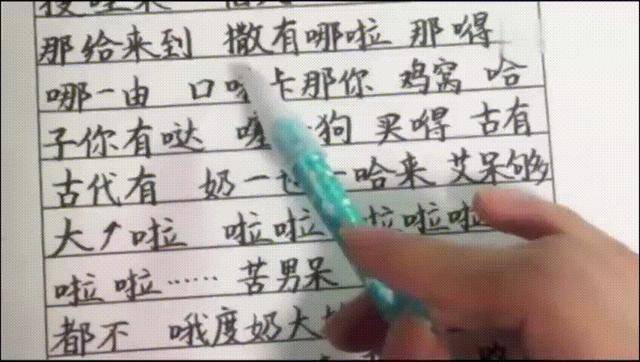 那给来到 撒有哪啦 那嘚
哪一由 口 卡那你 鸡窝 哈
子你有哒 狗 买嘚 古有
古代有 奶一 一哈来 艾呆够
大↑啦 啦啦 啦啦
啦啦…… 苦男呆
都不 哦度奶大